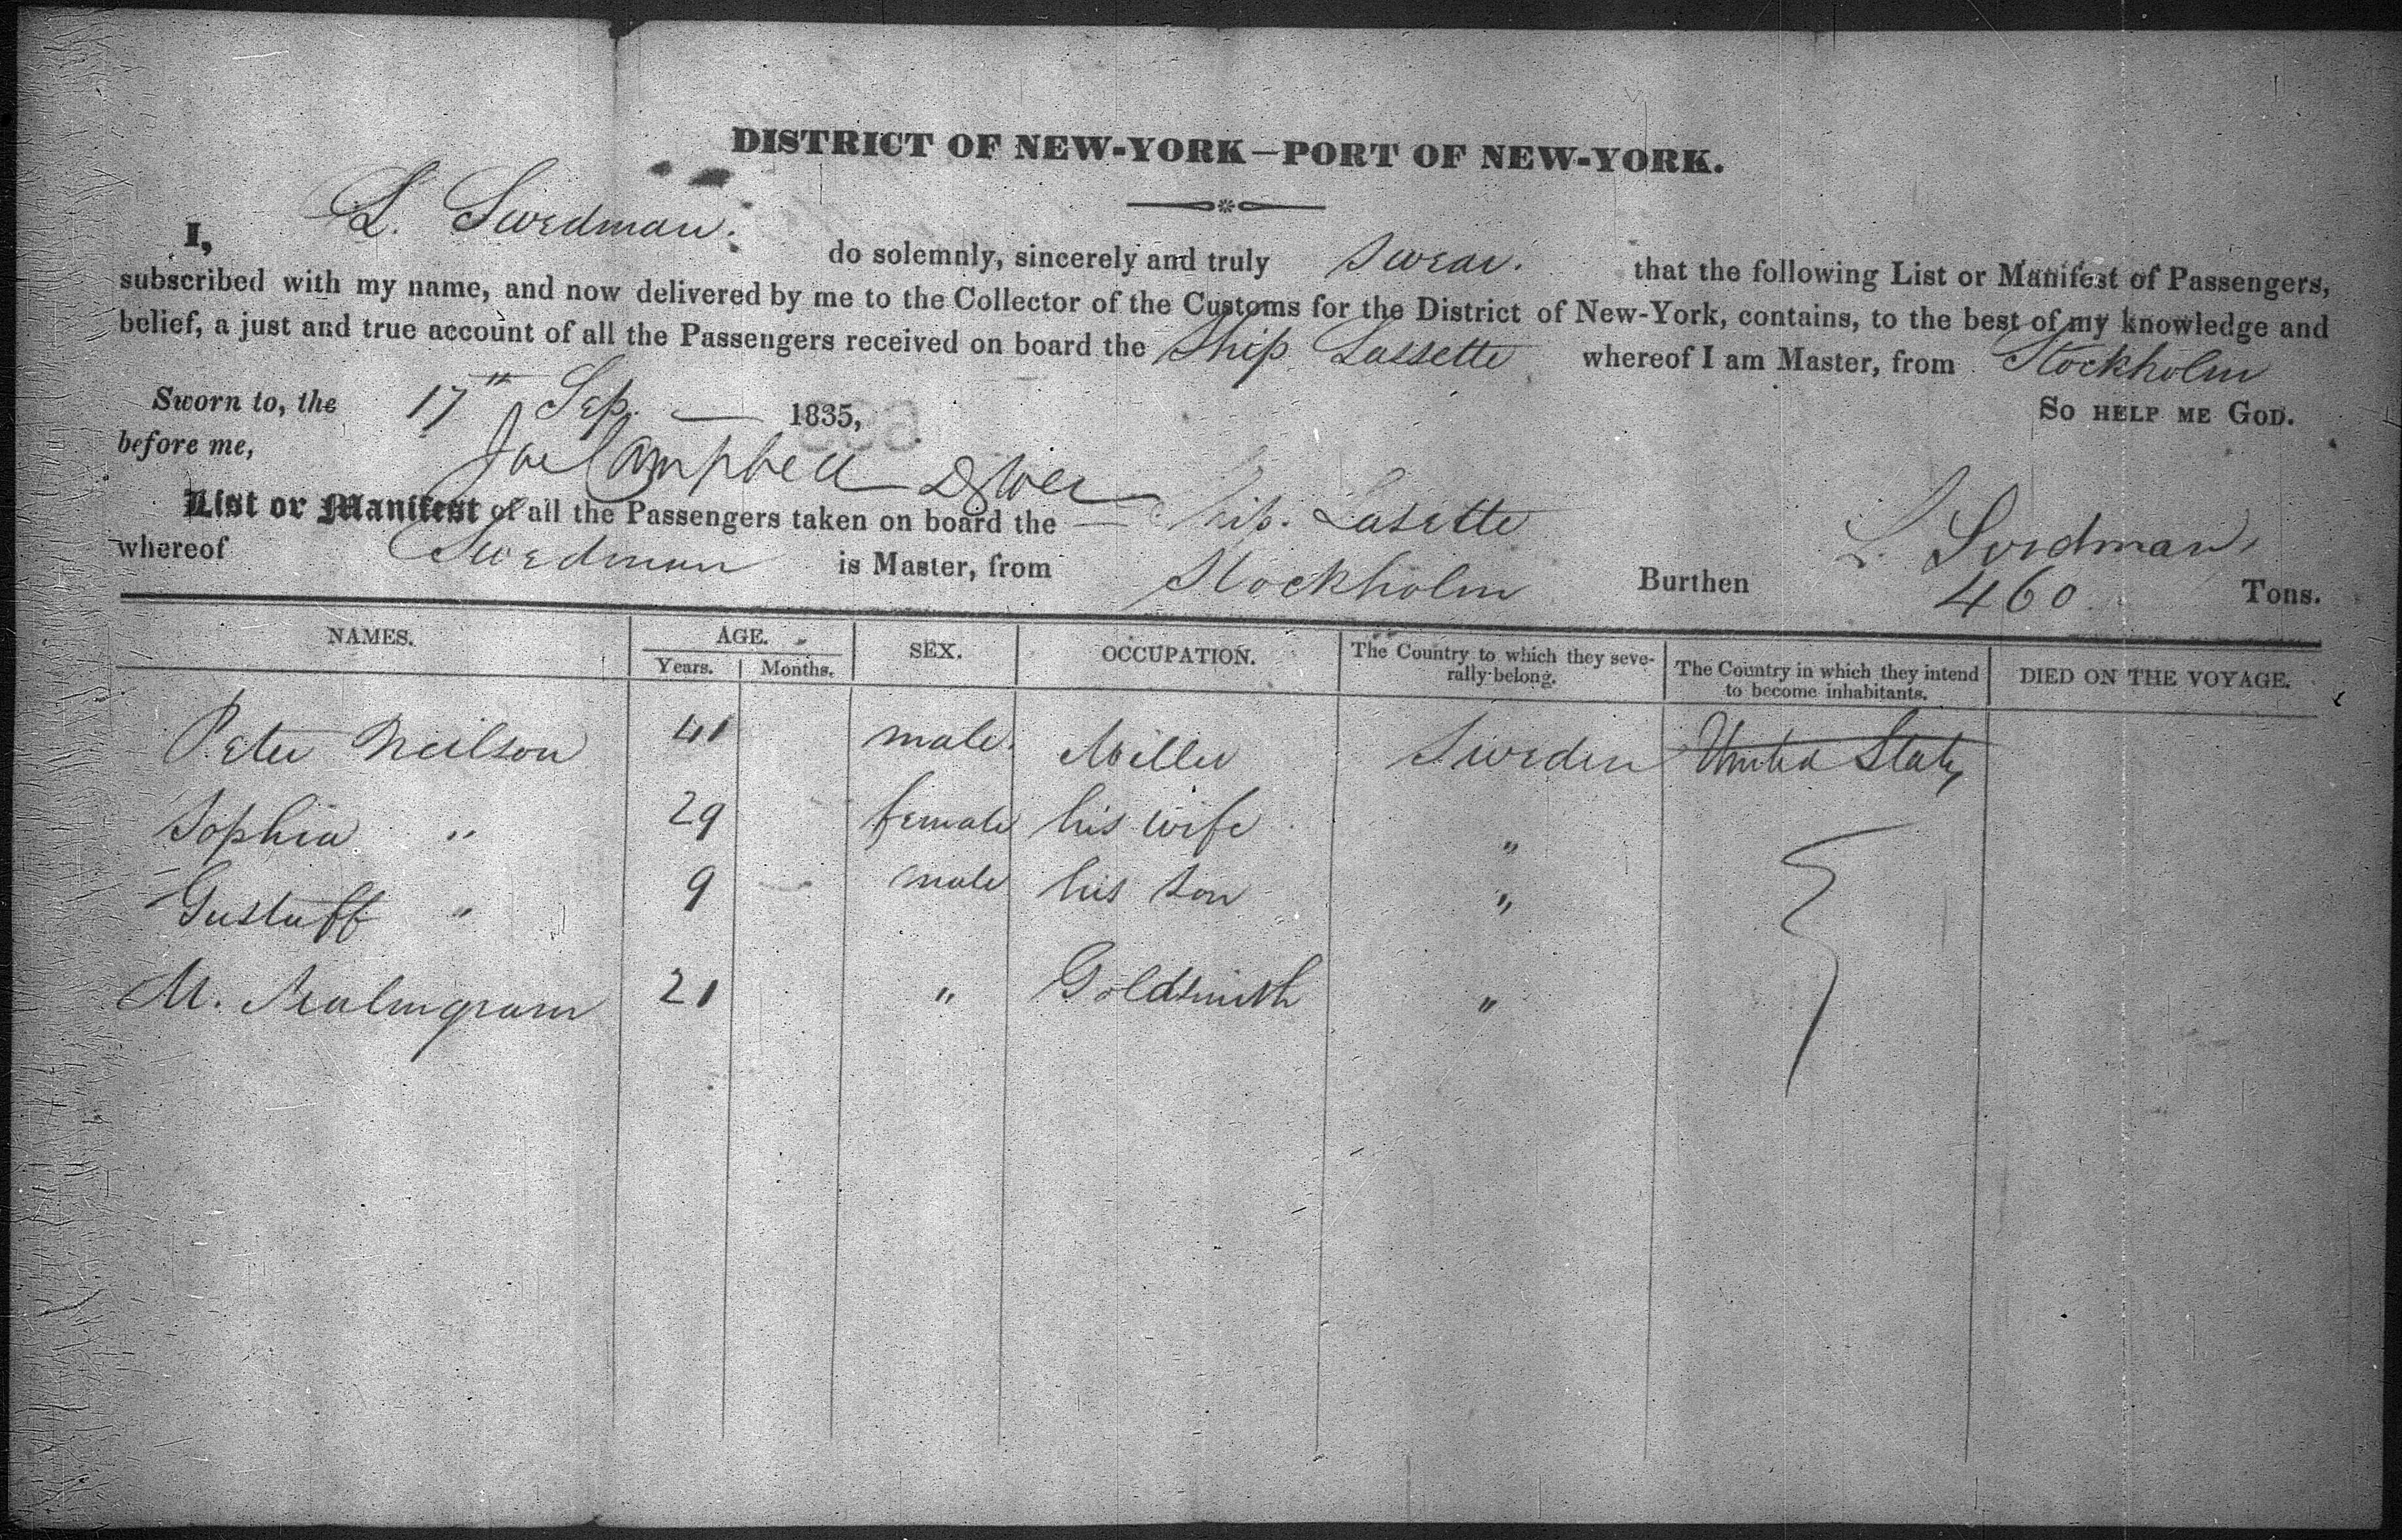 DISTRICT OF NEW-YORK—PORT OF NEW-YORK.
I, L. Swedman. do solemnly, sincerely and truly swear. that the following List or Manifest of Passengers,
subscribed with my name, and now delivered by me to the Collector of the Customs for the District of New-York, contains, to the best of my knowledge and
belief, a just and true account of all the Passengers received on board the Ship Lassette whereof I am Master, from Stockholm
Sworn to, the 17th Sep. 1835, So HELP ME GOD.
before me, Campbell
L. Swedman
List or Manifest of all the Passengers taken on board the Ship. Lasette
whereof Swedman is Master, from Stockholm Burthen 460 Tons.
NAMES. AGE. SEX. OCCUPATION. The Country to which they seve-rally belong. The Country in which they intend to become inhabitants. DIED ON THE VOYAGE.
Years. Months.
Peter Neilson 41 male. Miller Sweden United States
Sophia " 29 female his wife "
Gustaff " 9 male his son "
M. Malmgram 21 " Goldsmith "